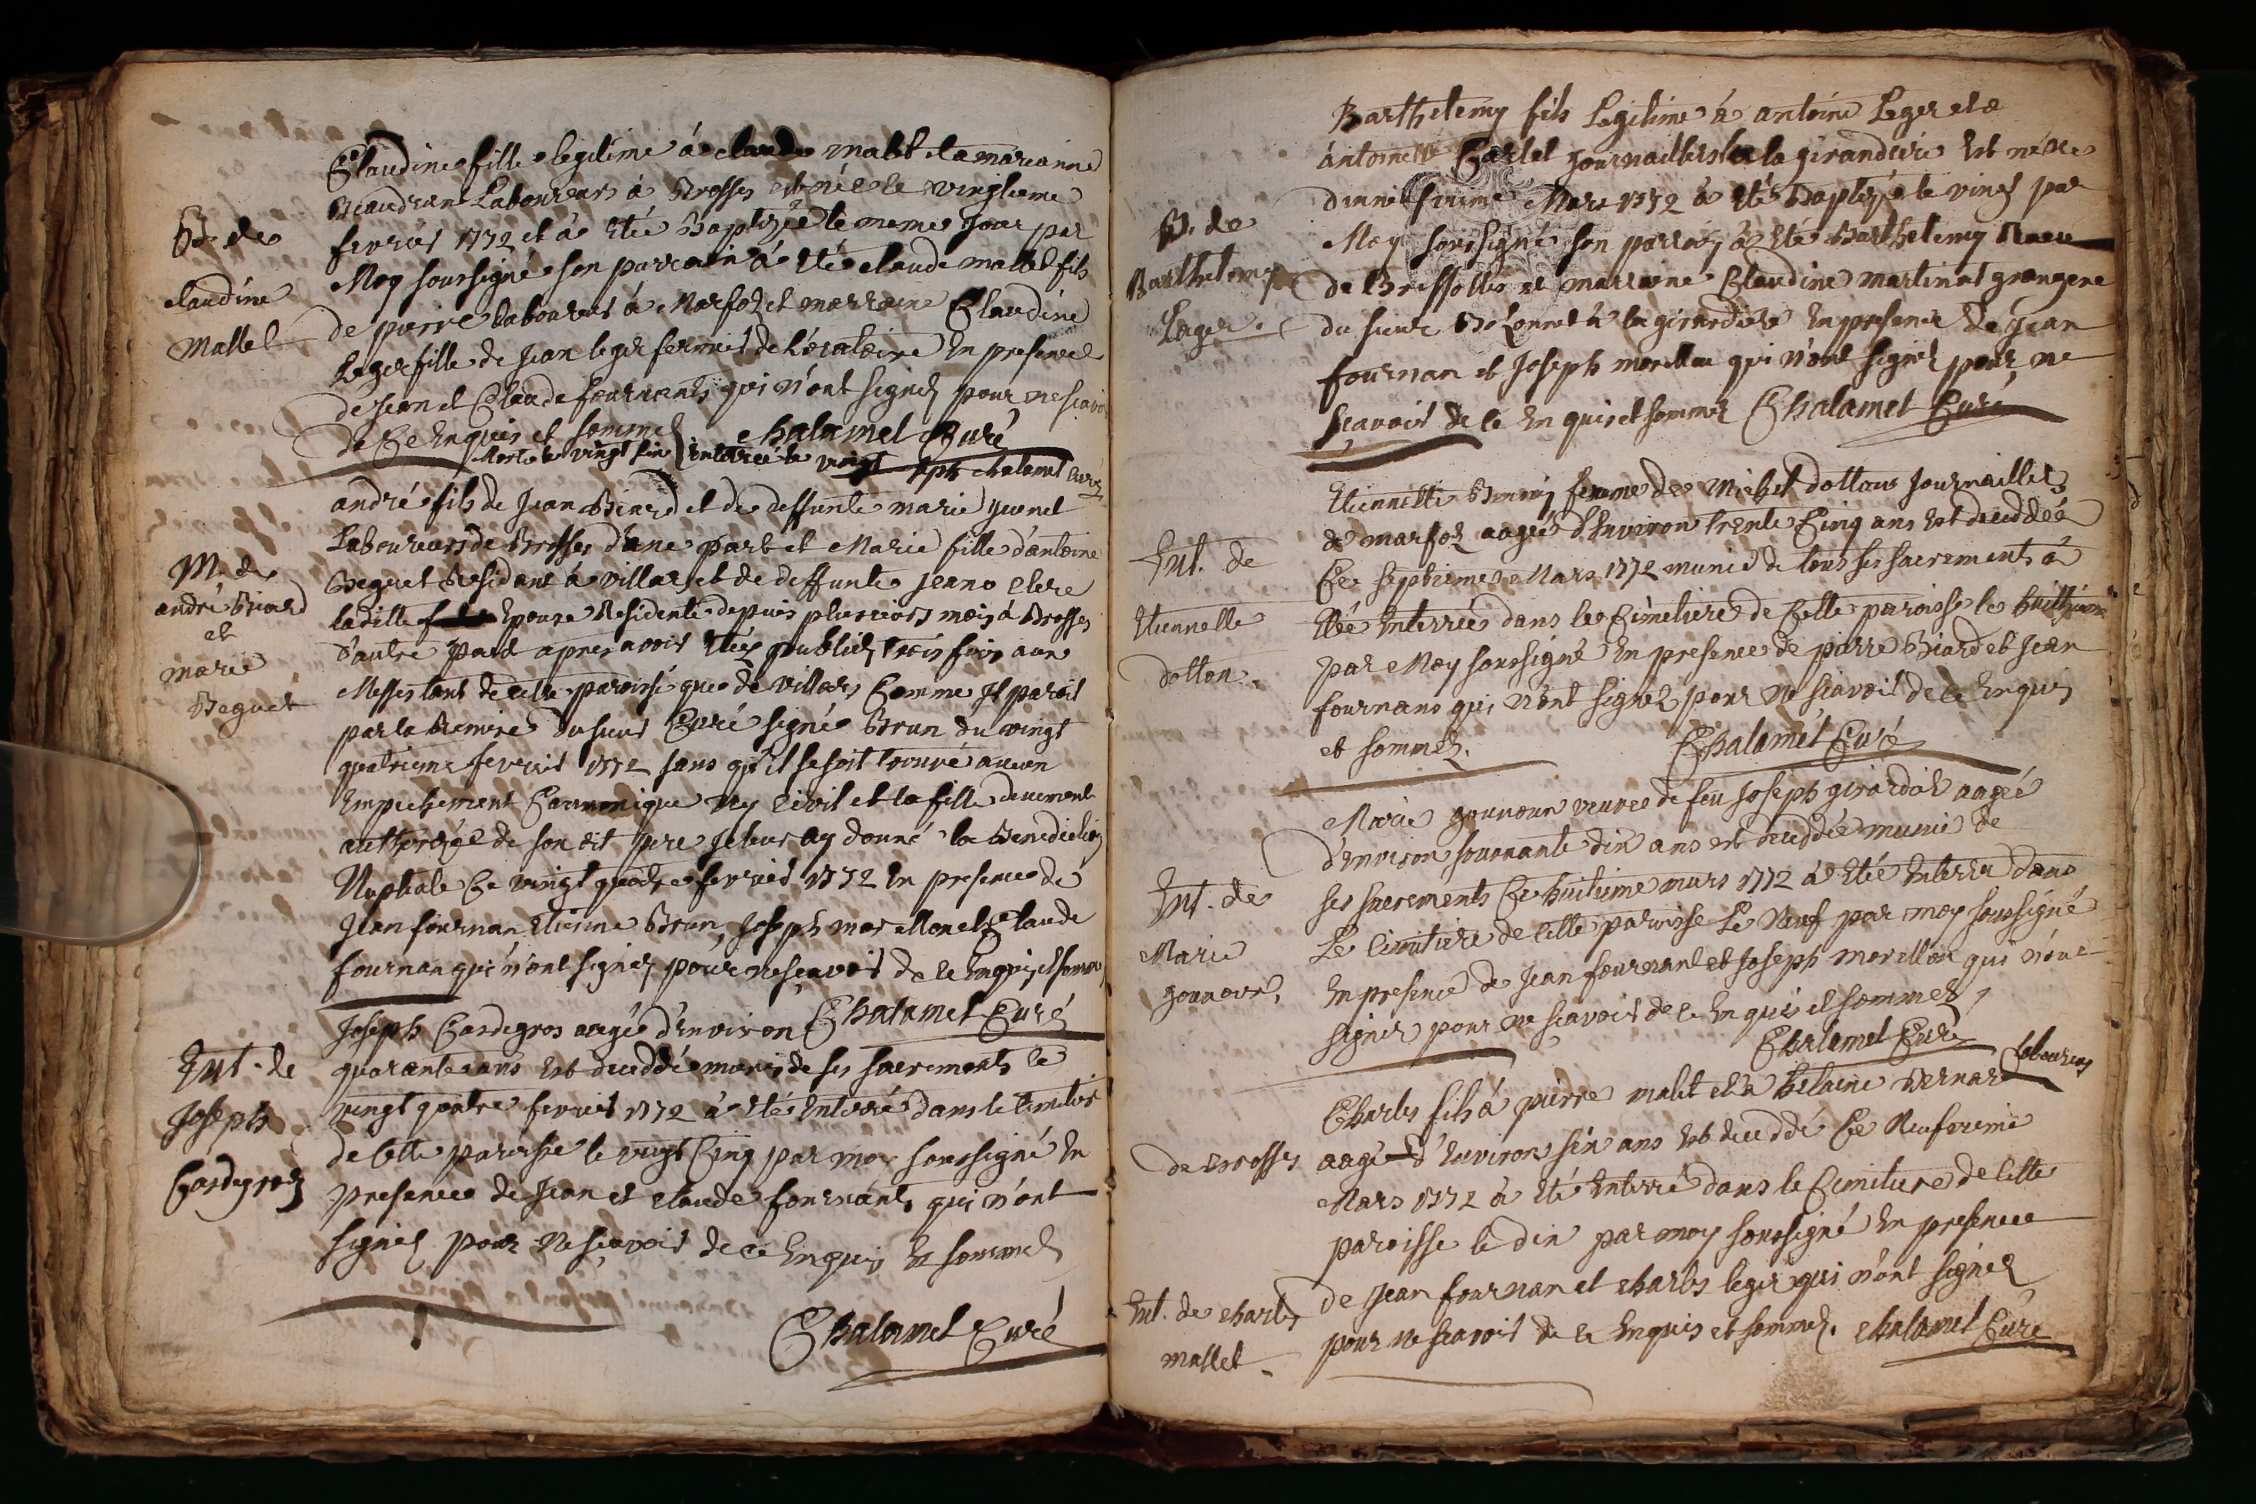 B. de
claudine
Mallet
Claudine fille legitime à claude malet et a marianne
Beaudrant Laboureurs à Brosses est née le vingtieme
fevrier 1772 et à etée Baptizée le meme Jour par
Moy soussigné son parrain à eté claude mallet fils
de pierre laboureur à Marfoz et marraine Claudine
Leger fille de Jean leger fermier de L'oratoire En presence
de Jean et Claude fournants qui n'ont signez pour ne scavoir
de Ce Enquis et sommez Chalamet Curé
Morte le vingt six Enterrée le vingt sept chalamet Curé
M. de
andré Biard
et
marie
Beguet
andré fils de Jean Biard et de deffunte marie yvonet
Laboureurs de Brosses d'une part et Marie fille d'antoine
Beguet Residant à villars et de deffunte jeane clere
ladille Epouse Residente depuis plusieurs mois à Brosses
d'autre part apres avoir etéz publiez trois fois aux
Messes tant de cette paroisse que de villars Comme Il paroit
par la Remise du sieur Curé signé Brun du vingt
quatrieme fevrier 1772 sans qu'il se soit trouvé aucun
Empechement Cannonique ny civil et la fille duement
authorizée de son dit pere Je leur ay donné la Benediction
Nuptiale Ce vingt quatre fevrier 1772 En presence de
Jean fournan Etienne Brun, Joseph morellon et Claude
fournan qui n'ont signez pour ne sçavoir de ce Enquis et sommez
Chalamet Curé
Ent. de
Joseph
Cardegros
Joseph Cardegros aagée d'environ
quarante ans est deceddé munis de ses sacrements le
vingt quatre fevrier 1772 à eté Enterré dans le Cimetier
de Cette paroisse le vingt Cinq par moy soussigné En
presence de Jean et claude fournants qui n'ont
signez pour Ne sçavoir de ce Enquis et sommez
Chalamet Curé
B. de
Barthelemy
Leger.
Barthelemy fils Legitime à antoine Leger et a
antoinette Carlet Journailliers à la girandiere est né le
dinneufvieme Mars 1772 à eté Baptizé le vingt par
Moy soussigné son parrain à eté Barthelemy
de Bressolles et marraine Claudine martinat grangere
du sieur Bezonnet à la girardiere En presence de Jean
fournan et Joseph morellon qui n'ont signez pour ne
sçavoir de ce Enquis et sommez Chalamet Curé
Ent. de
Etiennette
dotton.
Etiennette Bonny femme de Michel dottons Journaillier
de marfoz aagée d'Environ trente Cinq ans est deceddée
Ce septieme Mars 1772 munie de tous ses sacrements à
Etée Enterrée dans le Cimetiere de Cette paroisse le huittieme
par Moy soussigné En presence de pierre Biard et Jean
fournans qui n'ont signez pour ne sçavoir de ce Enquis
et sommez.
Chalamet Curé
Ent. de
Marie
gonnour.
Marie gonnour veuve de feu Joseph girardot aagée
d'Environ soixante dix ans est deceddée munie de
ses sacrements Ce huitieme mars 1772 à etée Enterrée dans
Le Cimetiere de Cette paroisse Le Neuf par moy soussigné
En presence de Jean fournant et Joseph morellon qui n'ont
signez pour ne sçavoir de ce Enquis et sommez
Chalamet Curé
Charles fils à pierre malet et à helaine Bernard Laboureurs
de Brosses aagé d'Environ six ans est deceddé Ce Neufvieme
Mars 1772 à eté Enterré dans le Cimetiere de Cette
paroisse le dix par moy soussigné En presence
de Jean fournan et charles leger qui n'ont signez
pour ne sçavoir de ce Enquis et sommez. chalamet Curé
Ent. de charles
mallet.